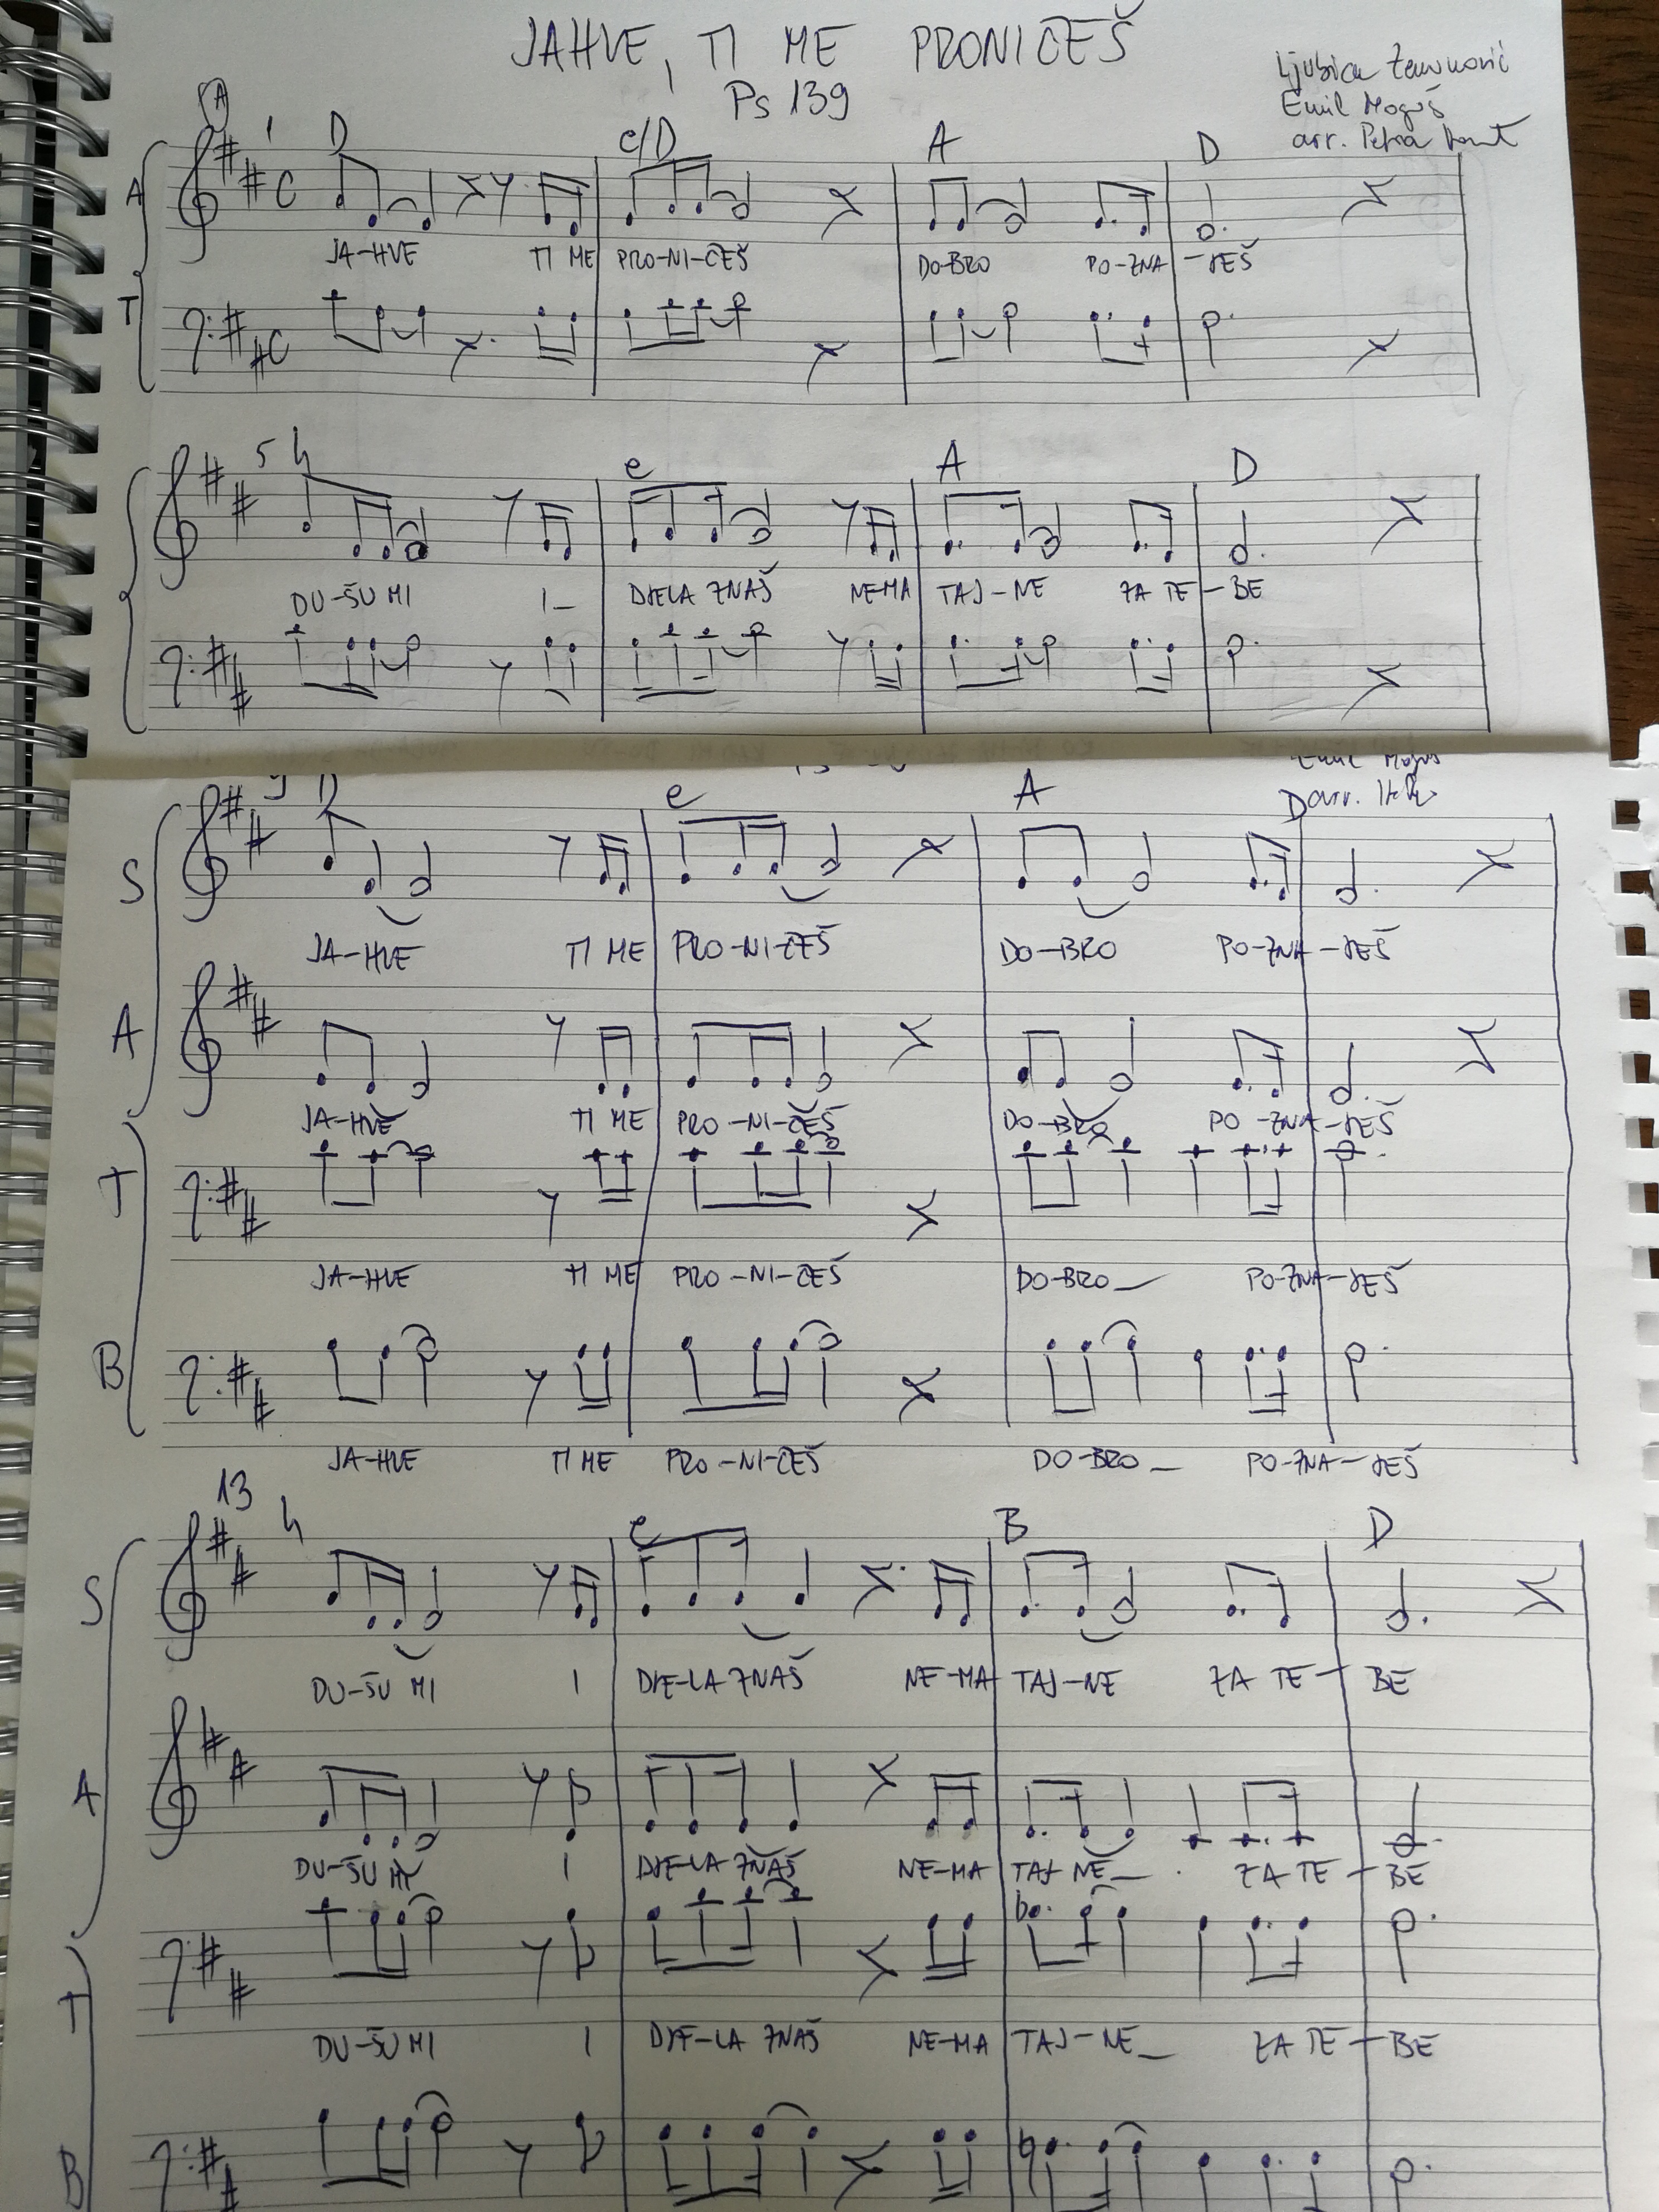 JAHVE, TI ME PRONIČEŠ
Ps 139
Ljubica
Emil Moguš
arr. Petra
A
1 D e/D A D
A
JA-HVE TI ME PRO-NI-ČEŠ DO-BRO PO-ZNA-JEŠ
T
5 h e A D
DU-ŠU MI I_ DJELA ZNAŠ NE-MA TAJ-NE ZA TE-BE
Emil Moguš
arr.
9 D e A D
S
JA-HVE TI ME PRO-NI-ČEŠ DO-BRO PO-ZNA-JEŠ
A
JA-HVE TI ME PRO-NI-ČEŠ DO-BRO PO-ZNA-JEŠ
T
JA-HVE TI ME PRO-NI-ČEŠ DO-BRO_ PO-ZNA-JEŠ
B
JA-HVE TI ME PRO-NI-ČEŠ DO-BRO_ PO-ZNA-JEŠ
13 h e B D
S
DU-ŠU MI I DJE-LA ZNAŠ NE-MA TAJ-NE ZA TE-BE
A
DU-ŠU MI I DJE-LA ZNAŠ NE-MA TAJ NE_ ZA TE-BE
T
DU-ŠU MI I DJE-LA ZNAŠ NE-MA TAJ-NE_ ZA TE-BE
B